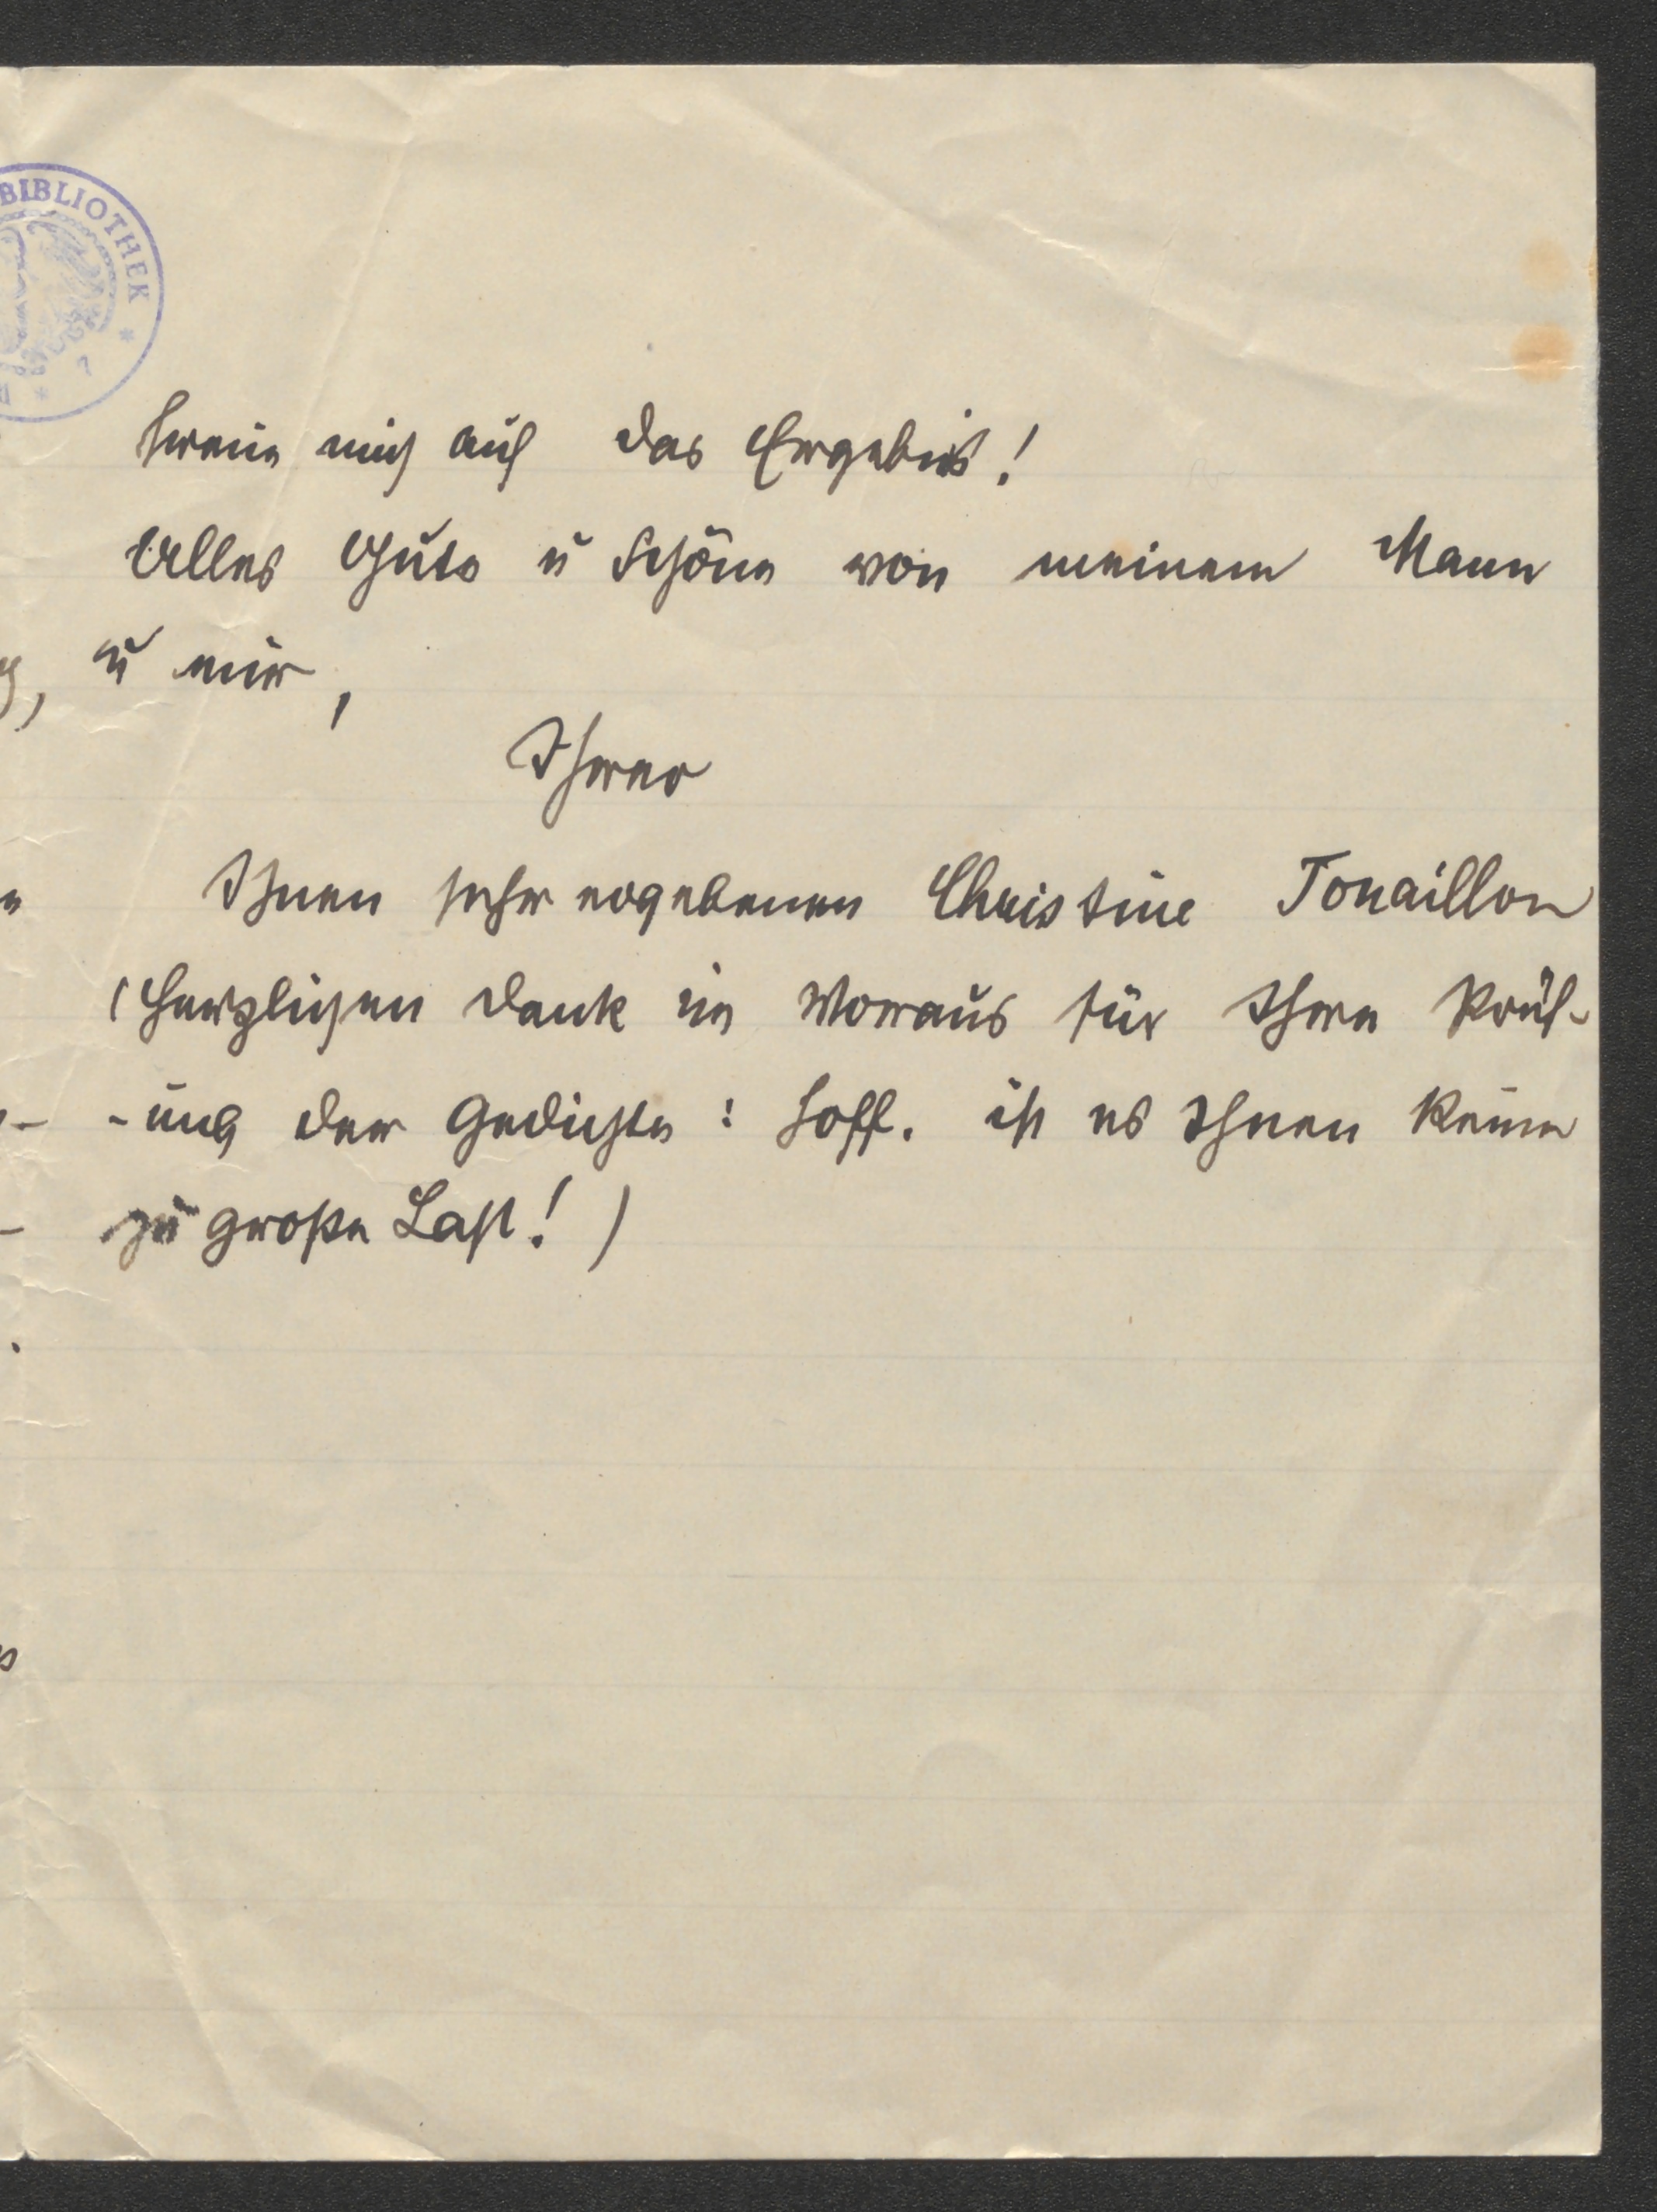 BIBLIOTHEK
freue mich auf das Ergebnis!
Alles Gute u Schöne von meinem Mann
u mir,
Ihrer
Ihnen sehr ergebenen Christine Touaillon
(Herzlichen Dank im Voraus für Ihre Prüf-
-ung der Gedichte: hoff. ist es Ihnen keine
zu große Last!)